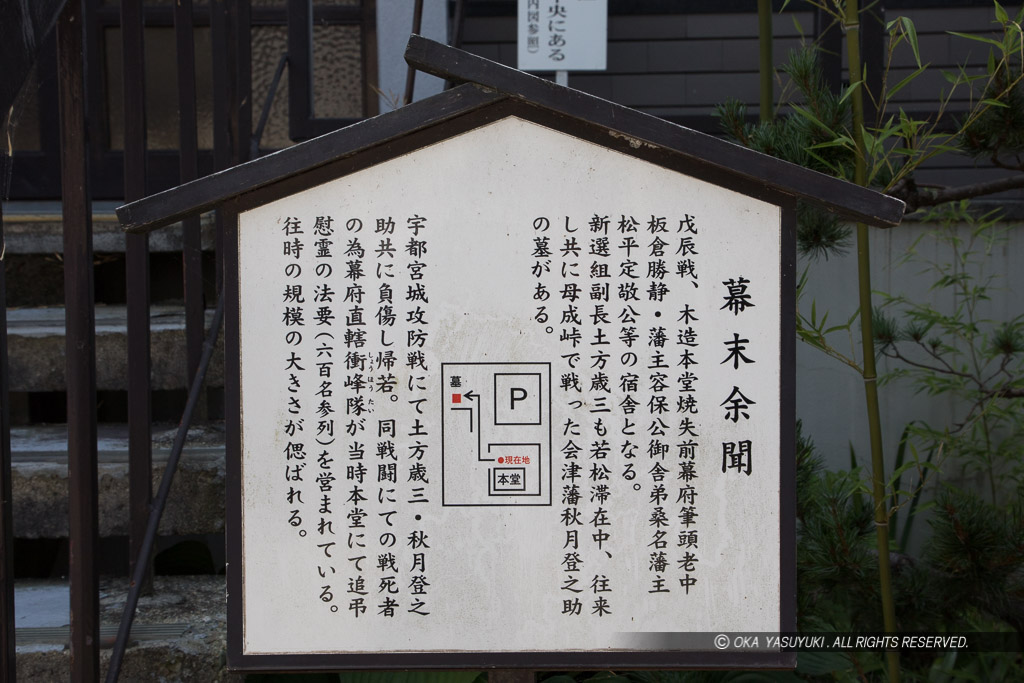 中央にある
内図参照）
幕末余聞
戊辰戦、木造本堂焼失前幕府筆頭老中
板倉勝静・藩主容保公御舎弟桑名藩主
松平定敬公等の宿舎となる。
新選組副長土方歳三も若松滞在中、往来
し共に母成峠で戦った会津藩秋月登之助
の墓がある。
墓
P
現在地
本堂
宇都宮城攻防戦にて土方歳三・秋月登之
助共に負傷し帰若。同戦闘にての戦死者
の為幕府直轄衝峰隊が当時本堂にて追弔
しょうほうたい
慰霊の法要（六百名参列）を営まれている。
往時の規模の大きさが偲ばれる。
© OKA YASUYUKI. ALL RIGHTS RESERVED.